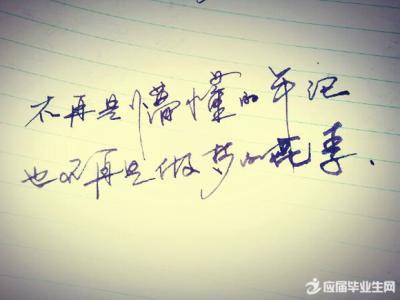 不再是懵懂的年纪
也不再是做梦的花季、
应届毕业生网